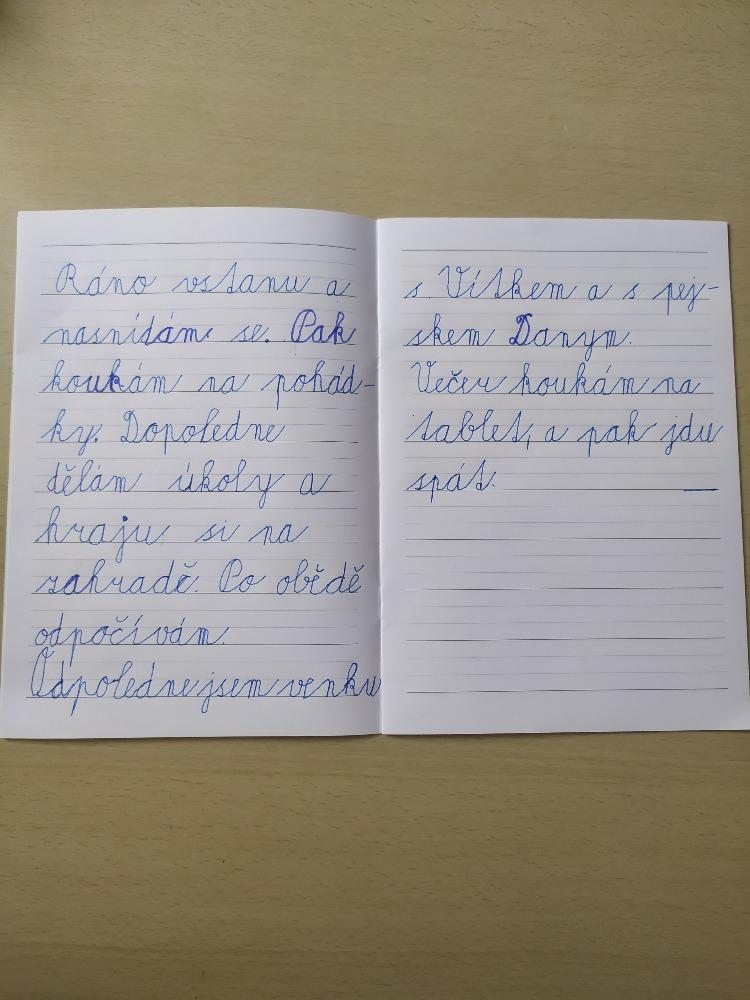 Ráno vstanu a
nasnídám se. Pak
koukám na pohád-
ky. Dopoledne
dělám úkoly a
hraju si na
zahradě. Po obědě
odpočívám.
Odpoledne jsem venku
s Vítkem a s pej-
skem Danym.
Večer koukám na
tablet, a pak jdu
spát.